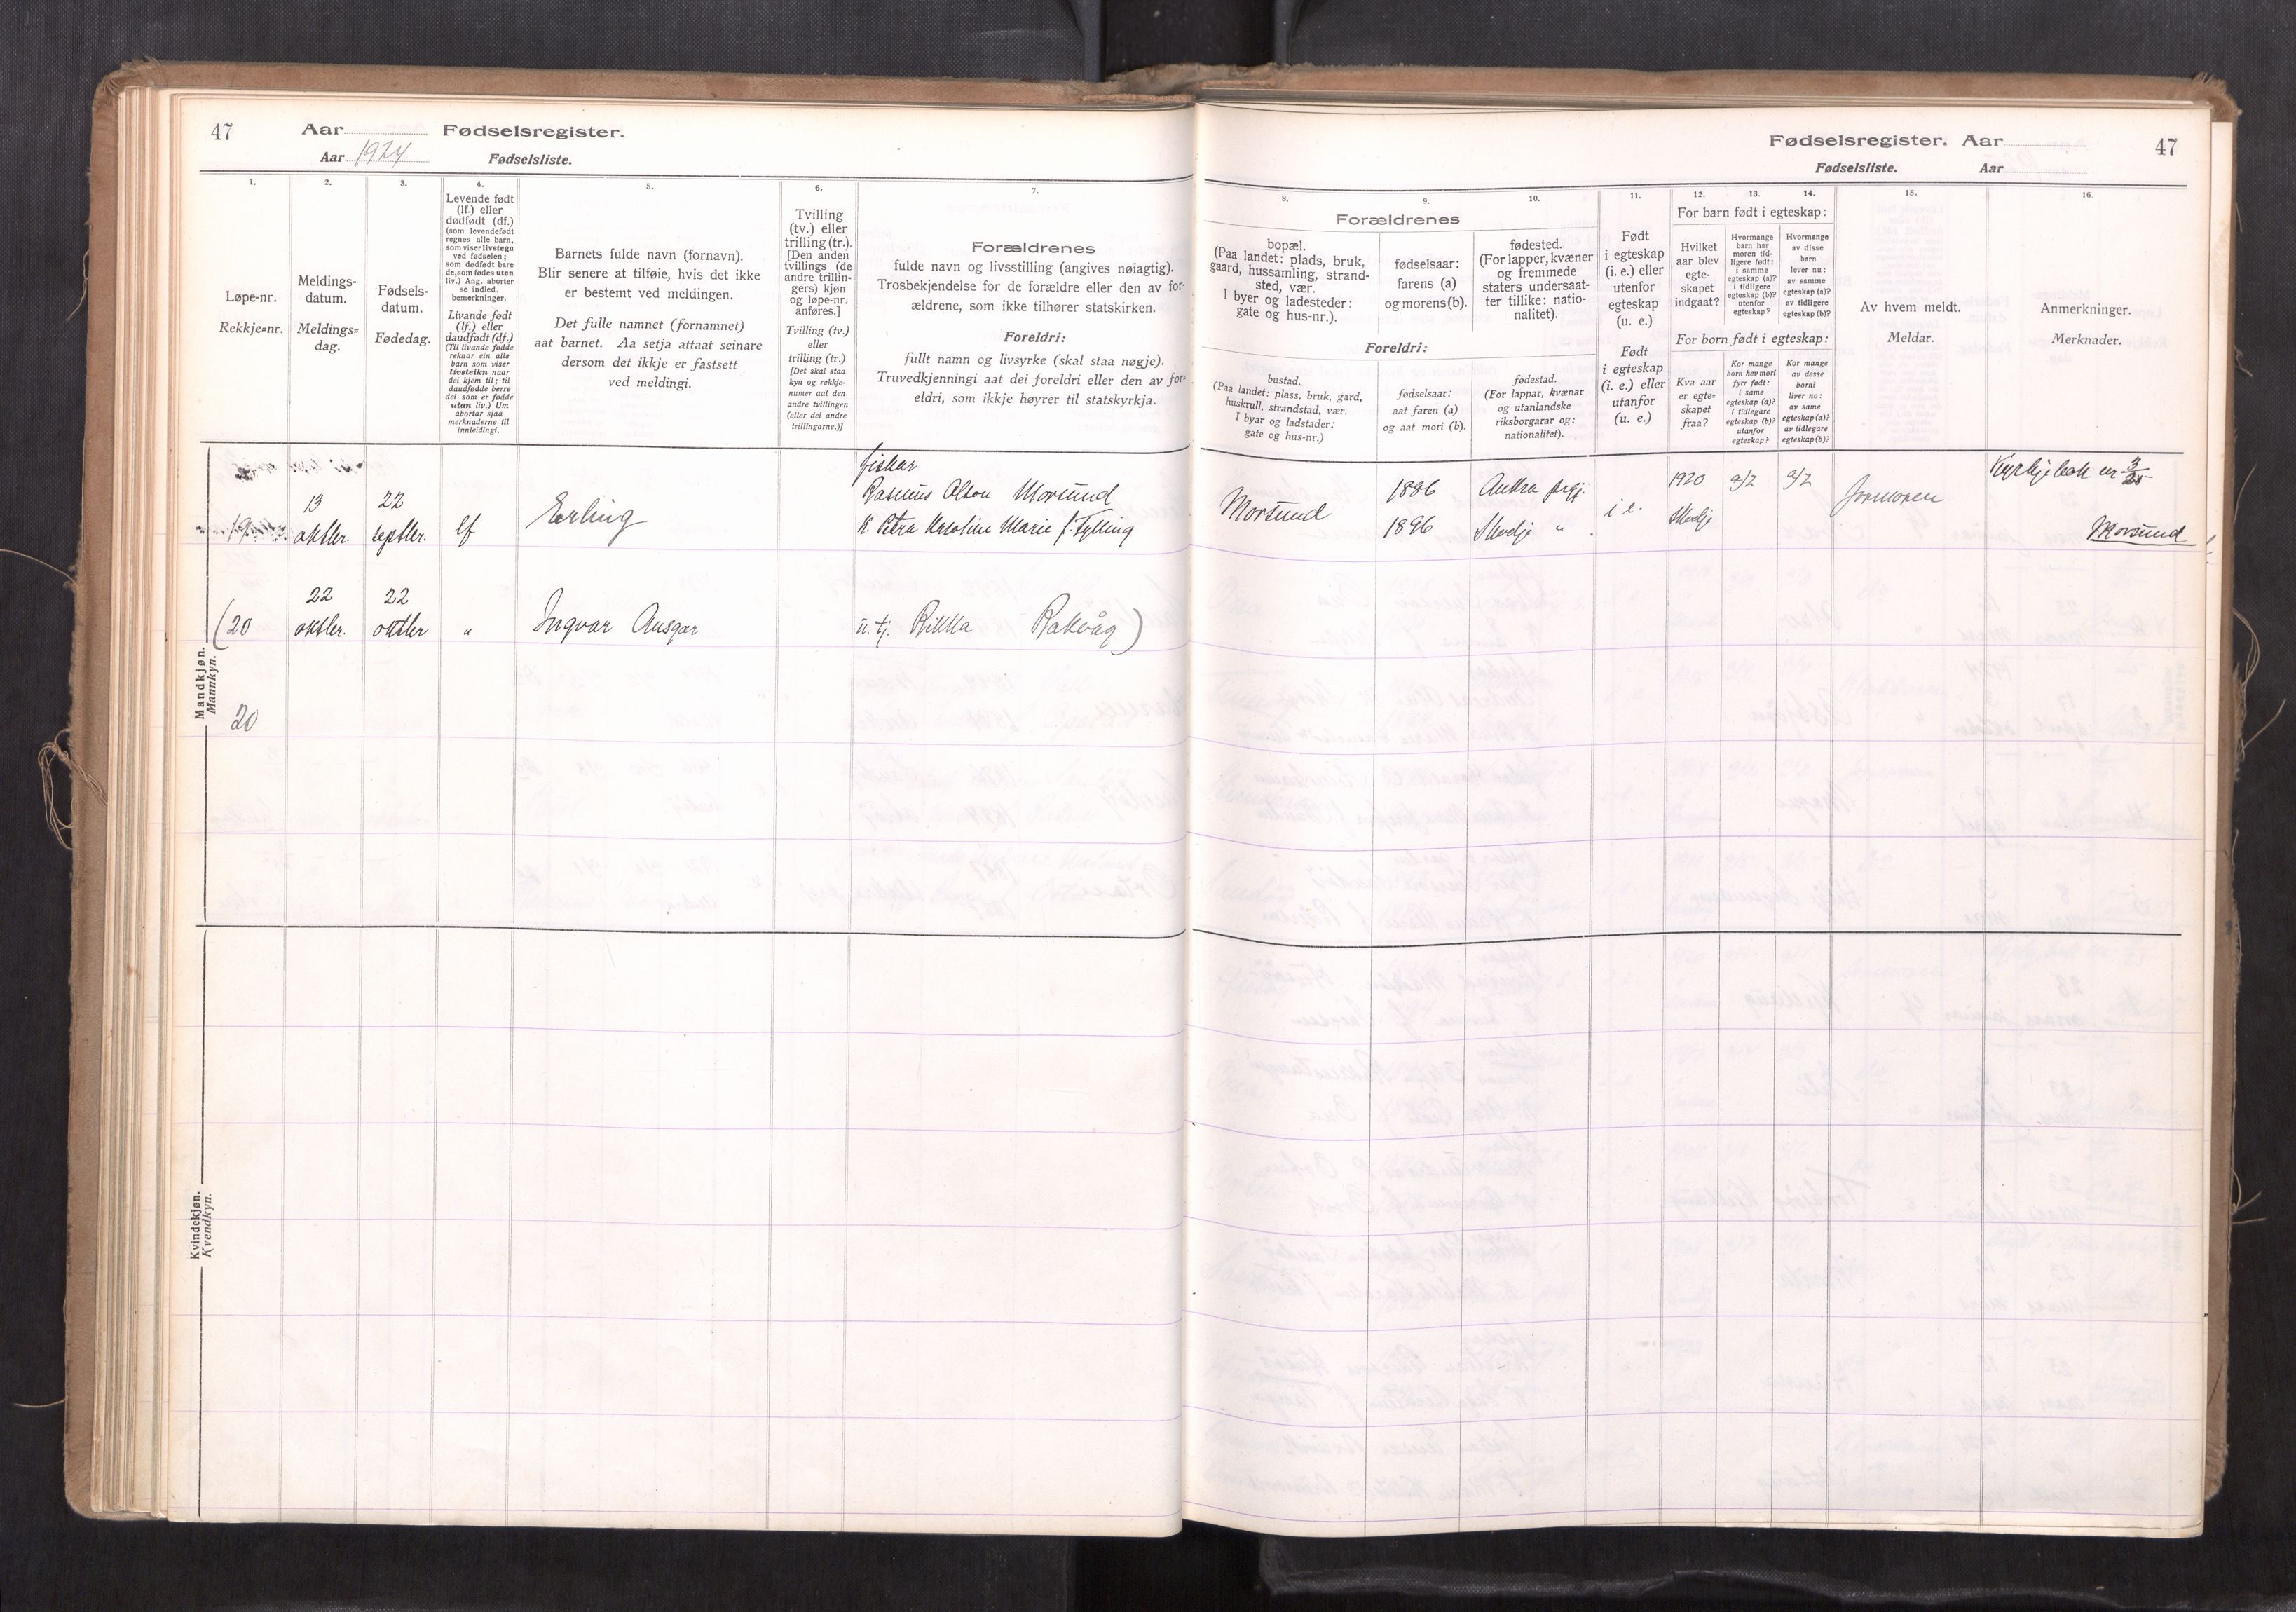 47
Aar
Fødselsregister.
Aar 1924
Fødselsliste.
1.
2.
3.
4.
5.
6.
7.
Løpe-nr.
Rekkje=nr.
Meldings-
datum.
Meldings=
dag.
Fødsels-
datum.
Fødedag.
Levende født
(lf.) eller
dødfødt (df.)
(som levendefødt
regnes alle barn,
som viser livstegn
ved fødselen;
som dødfødt bare
de, som fødes uten
liv.) Ang. aborter
se indled.
bemerkninger.
Livande født
(lf.) eller
daudfødt (df.)
(Til livande fødde
reknar ein alle
barn som viser
livsteikn naar
dei kjem til; til
daudfødde berre
dei som er fødde
utan liv.) Um
abortar sjaa
merknaderne til
innleidingi.
Barnets fulde navn (fornavn).
Blir senere at tilføie, hvis det ikke
er bestemt ved meldingen.
Det fulle namnet (fornamnet)
aat barnet. Aa setja attaat seinare
dersom det ikkje er fastsett
ved meldingi.
Tvilling
(tv.) eller
trilling (tr.).
[Den anden
tvillings (de
andre trillin-
gers) kjøn
og løpe-nr.
anføres.]
Tvilling (tv.)
eller
trilling (tr.)
[Det skal staa
kyn og rekkje-
numer aat den
andre tvillingen
(eller dei andre
trillingarne.)]
Forældrenes
fulde navn og livsstilling (angives nøiagtig).
Trosbekjendelse for de forældre eller den av for-
ældrene, som ikke tilhører statskirken.
Foreldri:
fullt namn og livsyrke (skal staa nøgje).
Truvedkjenningi aat dei foreldri eller den av for=
eldri, som ikkje høyrer til statskyrkja.
Mandkjøn.
Mannkyn.
19
13
oktbr.
22
septbr.
lf
Erling
fiskar
Rasmus Olsen Morsund
K. Petra Karoline Marie f. Fylling
(20
22
oktbr.
22
oktbr
"
Ingvar Ansgar
u. tj. Rikka Rakvåg)
20
Kvindekjøn.
Kvendkyn.
Fødselsregister. Aar
47
Fødselsliste.
Aar
8.
9.
10.
11.
12.
13.
14.
15.
16.
Forældrenes
bopæl.
(Paa landet: plads, bruk,
gaard, hussamling, strand-
sted, vær.
I byer og ladesteder:
gate og hus-nr.).
fødselsaar:
farens (a)
og morens (b).
fødested.
(For lapper, kvæner
og fremmede
staters undersaat-
ter tillike: natio-
nalitet).
Foreldri:
bustad.
(Paa landet: plass, bruk, gard,
huskrull, strandstad, vær.
I byar og ladstader:
gate og hus=nr.)
fødselsaar:
aat faren (a)
og aat mori (b).
fødestad.
(For lappar, kvænar
og utanlandske
riksborgarar og:
nationalitet).
Født
i egteskap
(i. e.) eller
utenfor
egteskap
(u. e.)
Født
i egteskap
(i. e.) eller
utanfor
(u. e.)
For barn født i egteskap:
Hvilket
aar blev
egte-
skapet
indgaat?
Hvormange
barn har
moren tid-
ligere født:
i samme
egteskap (a)?
i tidligere
egteskap (b)?
utenfor
egteskap?
Hvormange
av disse
barn
lever nu:
av samme
egteskap (a)?
av tidligere
egteskap (b)?
For born født i egteskap:
Kva aar
er egte=
skapet
fraa?
Kor mange
born hev mori
fyrr født:
i same
egteskap (a)?
i tidlegare
egteskap (b)?
utanfor
egteskap?
Kor mange
av desse
borni
liver no:
av same
egteskap (a)?
av tidlegare
egteskap (b)?
Av hvem meldt.
Meldar.
Anmerkninger.
Merknader.
Morsund
1886
1896
Aukra prgj.
Skodje "
i e.
1920
Skodje
a/2
a/2
Jormoren
Kyrkjebok nr 3/25
Morsund